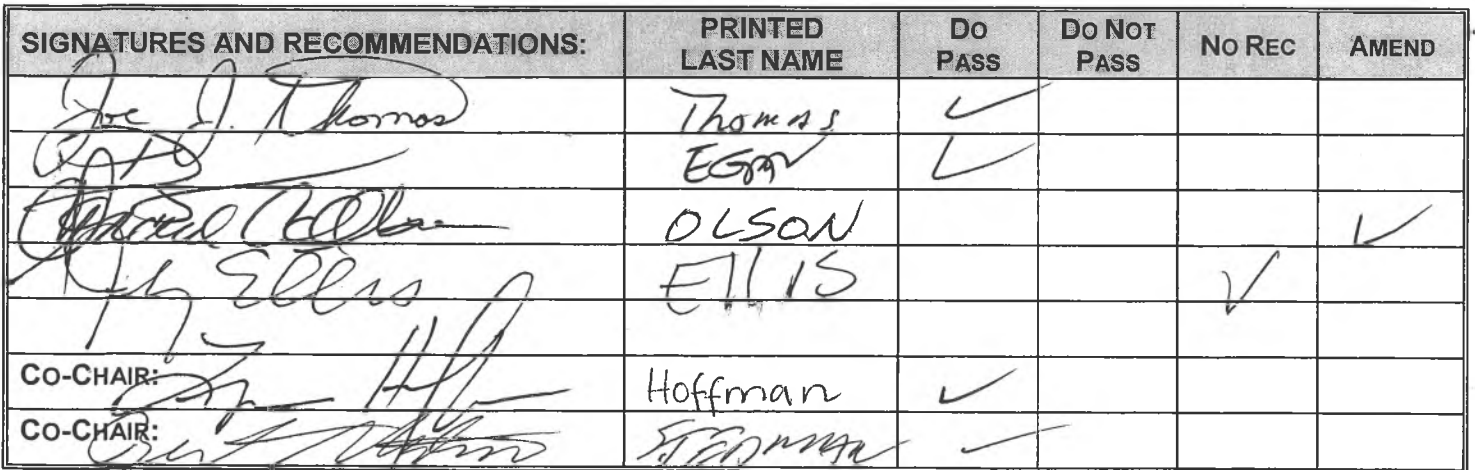 SIGNATURES AND RECOMMENDATIONS: PRINTED LAST NAME DO PASS DO NOT PASS NO REC AMEND
Joe J. Thomas Thomas ✓
EGAN ✓
OLSON ✓
Ellis Ellis ✓
CO-CHAIR: Hoffman ✓
CO-CHAIR: STEDMAN ✓